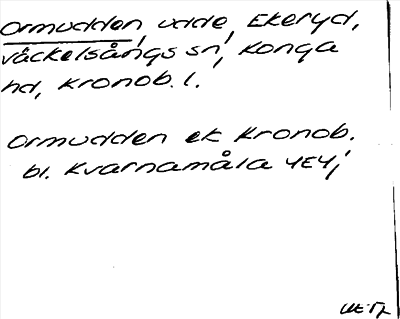 Ormudden, udde, Ekeryd,
Väckelsångs sn, Konga
hd, Kronob. l.
Ormudden ek Kronob.
bl. Kvarnamåla 4E4j